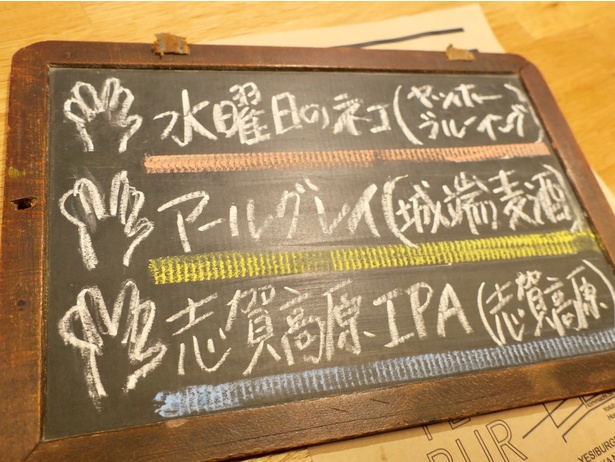 水曜日のネコ(ヤッホーブルーイング)
アールグレイ(城端麦酒)
志賀高原IPA(志賀高原)
BUR
YES!BURG